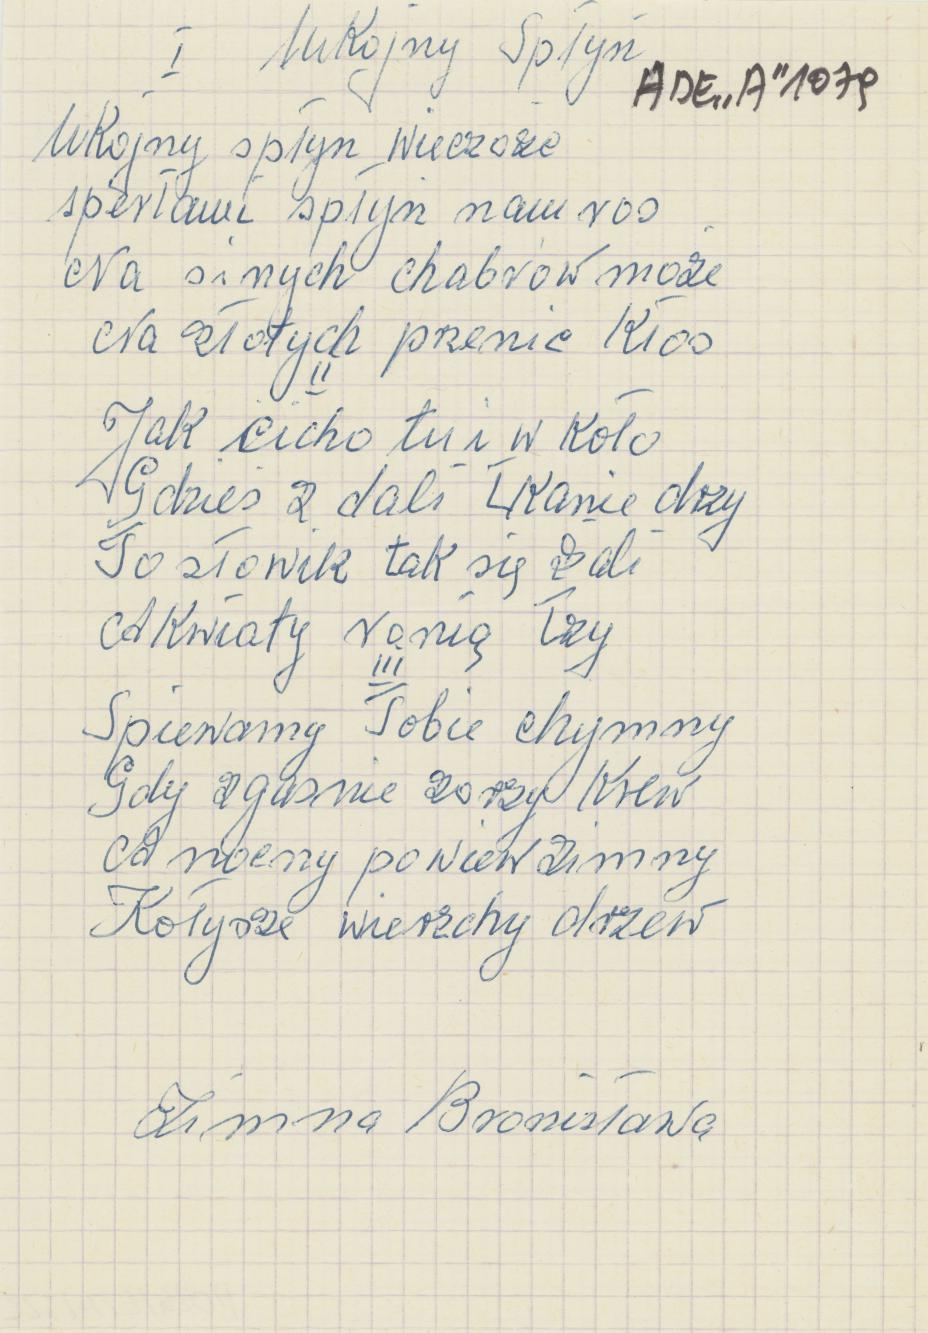 I Ukojny Spłyń
ADE "A" 1079
Ukojny spłyn wieczoże
sperłami spłyń nam ros
Na sinych chabrów może
Na złotych przenic kłos
II
Jak cicho tu i w koło
Gdzieś z dali Łkanie drzy
To słowik tak się żali
A Kwiaty ronią łzy
III
Spiewamy Tobie chymny
Gdy zgasnie zorzy Krew
A nocny powiew zimny
Kołysze wierzchy drzew
Zimna Bronisława